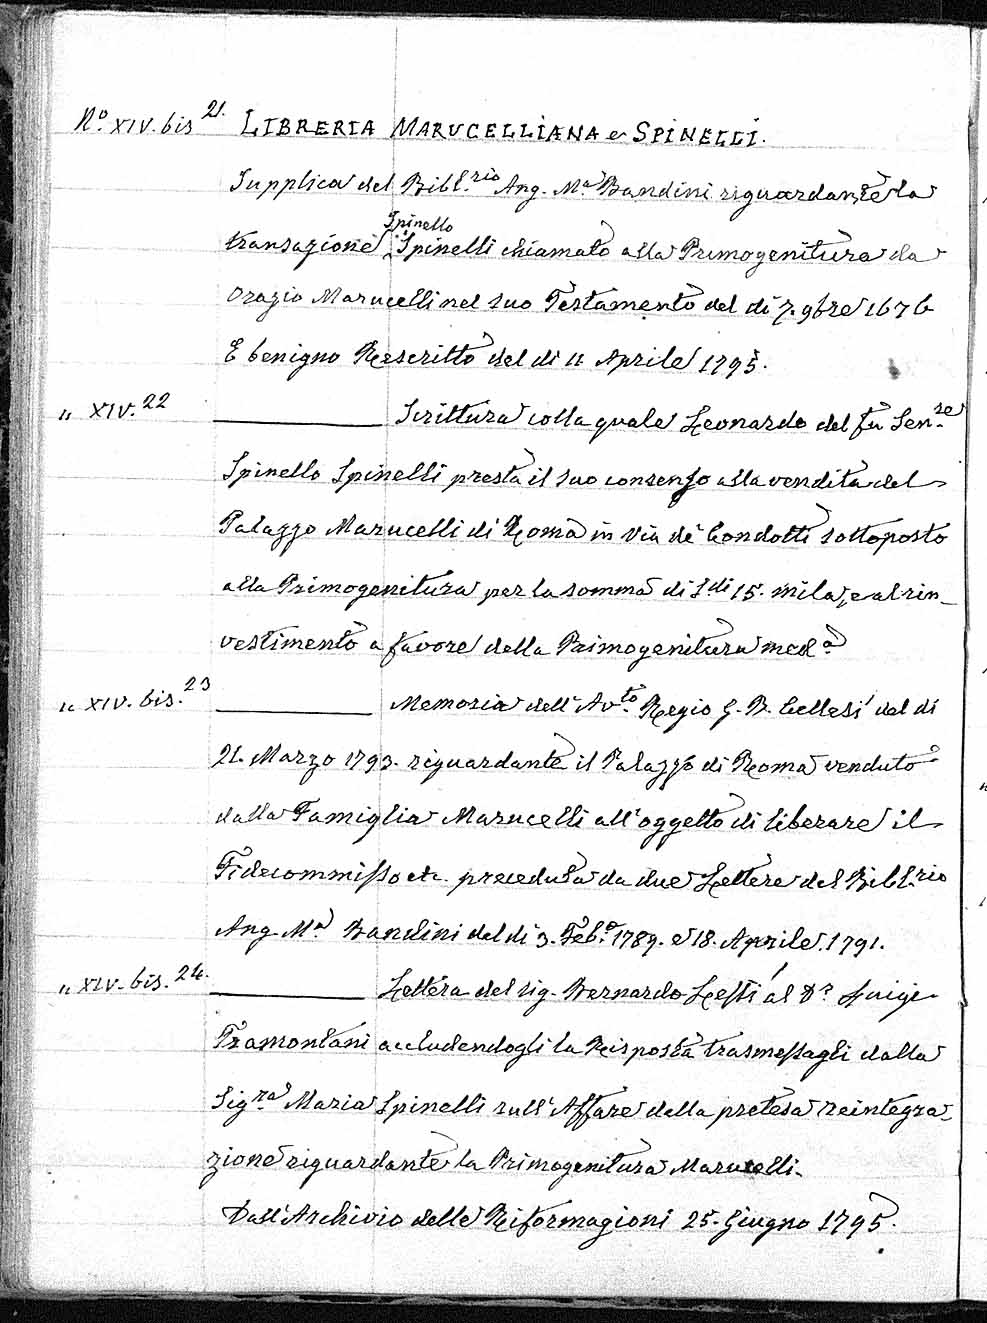 N.o XIV. bis 21. LIBRERIA MARUCELLIANA e SPINELLI.
Supplica del Bibl.rio Ang. M.a Bandini riguardante la
transazione Spinello Spinelli chiamato alla Primogenitura da
Orazio Marucelli nel suo Testamento del dì 7. 9bre 1676
E benigno Rescritto del dì 11 Aprile 1795.
" XIV. 22 ______ Scrittura colla quale Leonardo del fu Sen.re
Spinello Spinelli presta il suo consenso alla vendita del
Palazzo Marucelli di Roma in via de' Condotti sottoposto
alla Primogenitura per la somma di Sdi 15. mila, e al rin_
vestimento a favore della Primogenitura med.a
" XIV. bis. 23 ______ Memoria dell' Av.to Regio G. B. Cellesi del dì
21. Marzo 1793. riguardante il Palazzo di Roma venduto
dalla Famiglia Marucelli all'oggetto di liberare il
Fidecommisso etc. preceduta da due Lettere del Bibl.rio
Ang. M.a Bandini del dì 3. Feb.o 1789. e 18. Aprile. 1791.
" XIV. bis. 24. ______ Lettera del sig. Bernardo Lessi al D.r Luigi
Tramontani accludendogli la Risposta trasmessagli dalla
Sig.ra Maria Spinelli sull' Affare della pretesa reintegra_
zione riguardante la Primogenitura Marucelli.
Dall' Archivio delle Riformagioni 25. Giugno 1795.